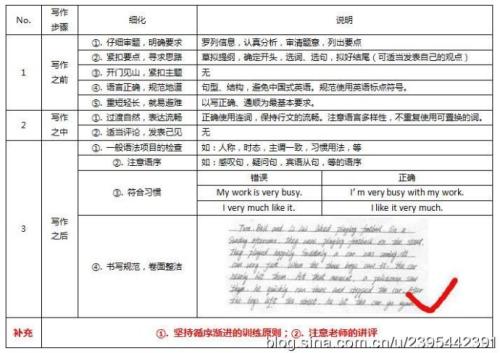 No. 写作步骤 细化 说明
1 写作之前
①. 仔细审题，明确要求 罗列信息，认真分析，审清题意，列出要点
②. 紧扣要点，寻求思路 草拟提纲，确定开头，选词、选句，拟好结尾（可适当发表自己的观点）
③. 开门见山，紧扣主题 无
④. 语言正确，规范地道 句型、结构，避免中国式英语。规范使用英语标点符号。
⑤. 重短轻长，就易避难 以写正确、通顺为最基本要求。
2 写作之中
①. 过渡自然，表达流畅 正确使用连词，保持行文的流畅。注意语言多样性，不重复使用可置换的词。
②. 适当评论，发表己见 无
3 写作之后
①. 一般语法项目的检查 如：人称，时态，主谓一致，习惯用法，等
②. 注意语序 如：感叹句，疑问句，宾语从句，等的语序
③. 符合习惯
错误 正确
My work is very busy. I' m very busy with my work.
I very much like it. I like it very much.
④. 书写规范，卷面整洁
补充 ①. 坚持循序渐进的训练原则；②. 注意老师的讲评
blog.sina.com.cn/u/2395442391